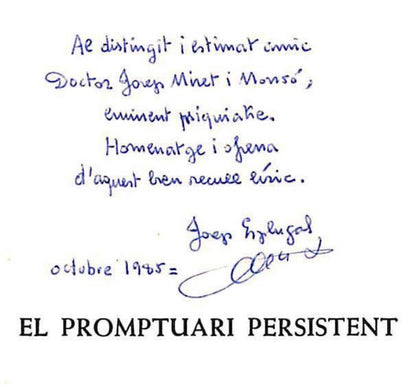 Al distingit i estimat amic
Doctor Josep Miret i Monsó,
eminent psiquiatre.
Homenatge i ofrena
d'aquest breu recull líric.
Josep Esplugas
octubre 1985=
EL PROMPTUARI PERSISTENT